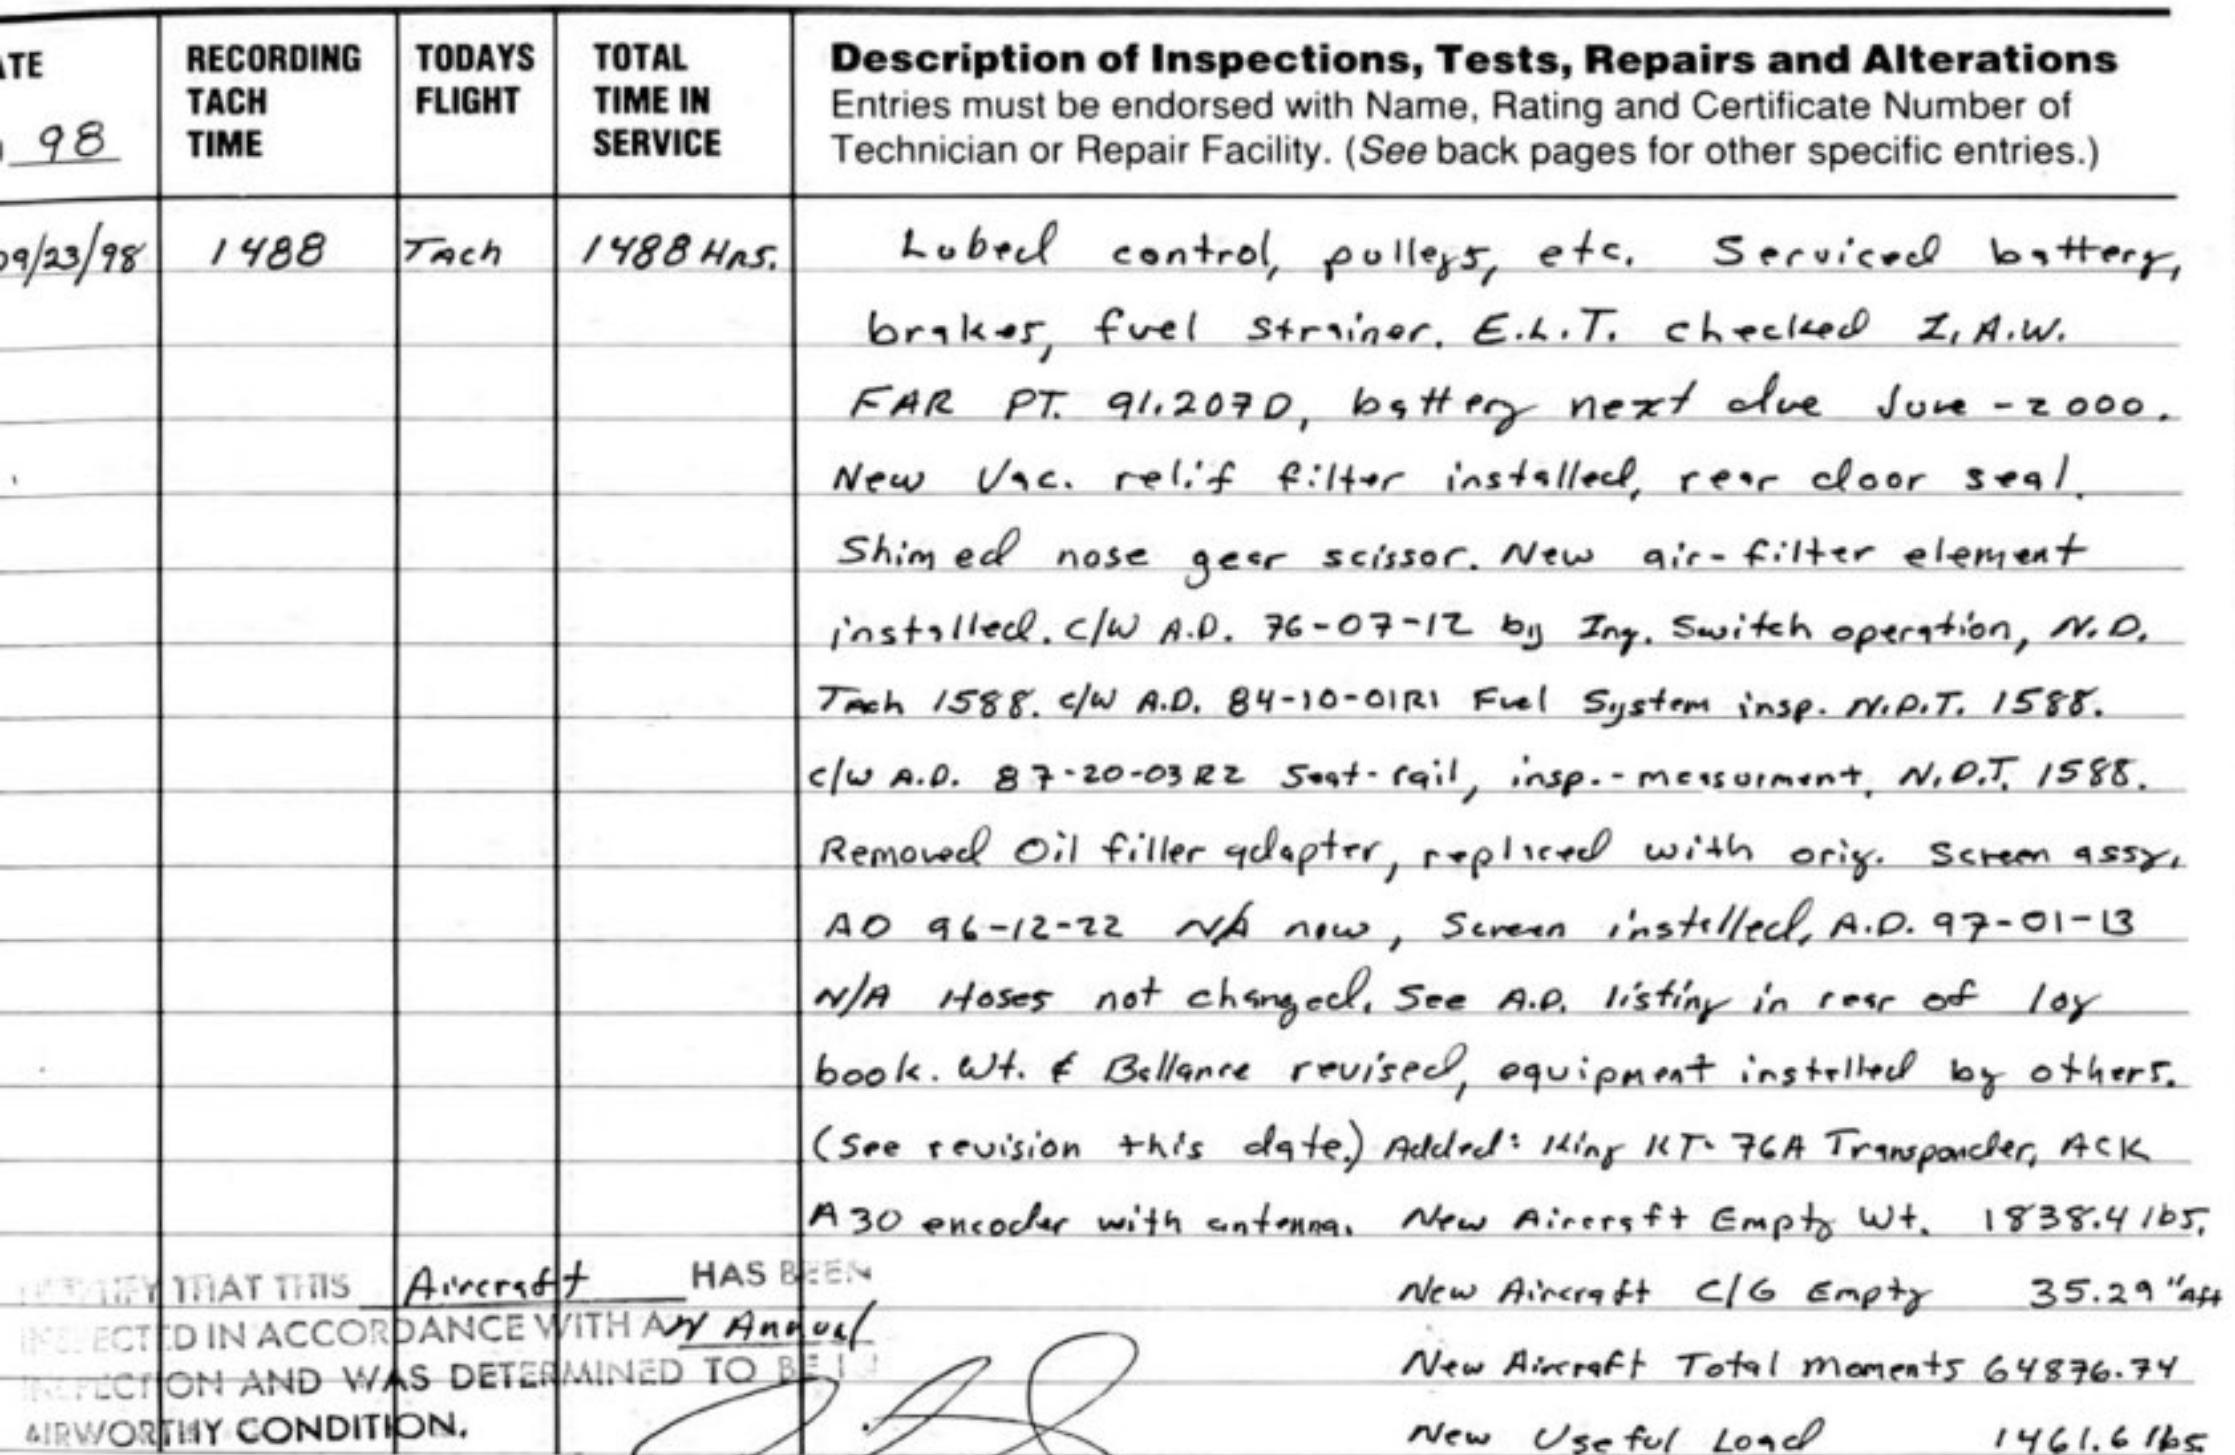 ATE
98
RECORDING
TACH
TIME
TODAYS
FLIGHT
TOTAL
TIME IN
SERVICE
Description of Inspections, Tests, Repairs and Alterations
Entries must be endorsed with Name, Rating and Certificate Number of
Technician or Repair Facility. (See back pages for other specific entries.)
09/23/98 1488 Tach 1488 Hrs. Lubed control, pulleys, etc. Serviced battery,
brakes, fuel strainer. E.L.T. checked I.A.W.
FAR PT. 91.207D, battery next due June-2000.
New Vac. relif filter installed, rear door seal.
Shimed nose gear scissor. New air-filter element
installed. C/W A.D. 76-07-12 by Ing. Switch operation, N.D.
Tach 1588. C/W A.D. 84-10-01R1 Fuel System insp. N.D.T. 1588.
C/W A.D. 87-20-03R2 Seat-rail, insp.-measurment. N.D.T. 1588.
Removed Oil filler adapter, replaced with orig. Screen assy.
AD 96-12-22 N/A now, Screen installed, A.D. 97-01-13
N/A Hoses not changed. See A.D. listing in rear of log
book. Wt. & Ballance revised, equipment installed by others.
(See revision this date.) Added: King KT-76A Transponder, ACK
A30 encoder with antenna. New Aircraft Empty Wt. 1838.4 lbs.
New Aircraft C/G Empty 35.29" Aft
New Aircraft Total Moments 64876.74
New Useful Load 1461.6 lbs
CERTIFY THAT THIS Aircraft HAS BEEN
INSPECTED IN ACCORDANCE WITH AN Annual
INSPECTION AND WAS DETERMINED TO BE IN
AIRWORTHY CONDITION.